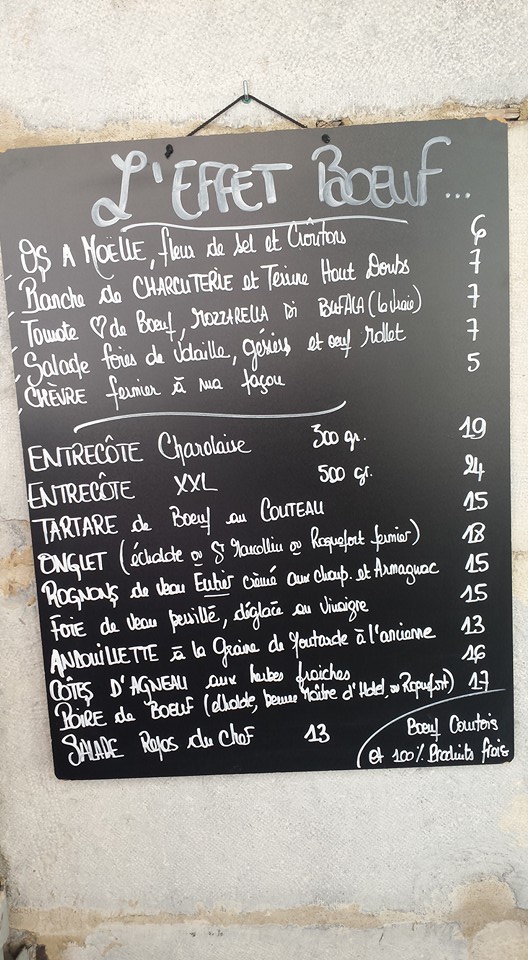 L'EFFET BOEUF...
OS A MOELLE, fleur de sel et Croûtons 6
Planche de CHARCUTERIE et Terrine Haut Doubs 7
Tomate ♡ de Boeuf, MOZZARELLA DI BUFALA (la vraie) 7
Salade foies de Volaille, gésiers et oeuf Mollet 7
CHÈVRE fermier à ma façon 5
ENTRECÔTE Charolaise 300 gr. 19
ENTRECÔTE XXL 500 gr. 24
TARTARE de Boeuf au COUTEAU 15
ONGLET (échalote ou St Marcellin ou Roquefort fermier) 18
ROGNONS de veau Entier crémé aux champ. et Armagnac 15
FOIE de veau persillé, déglacé au Vinaigre 15
ANDOUILLETTE à la Graine de Moutarde à l'ancienne 13
CÔTES D'AGNEAU aux herbes fraîches 16
POIRE de BOEUF (échalote, beurre Maître d'Hotel, ou Roquefort) 17
SALADE Repas du Chef 13
Boeuf Comtois
et 100% Produits frais